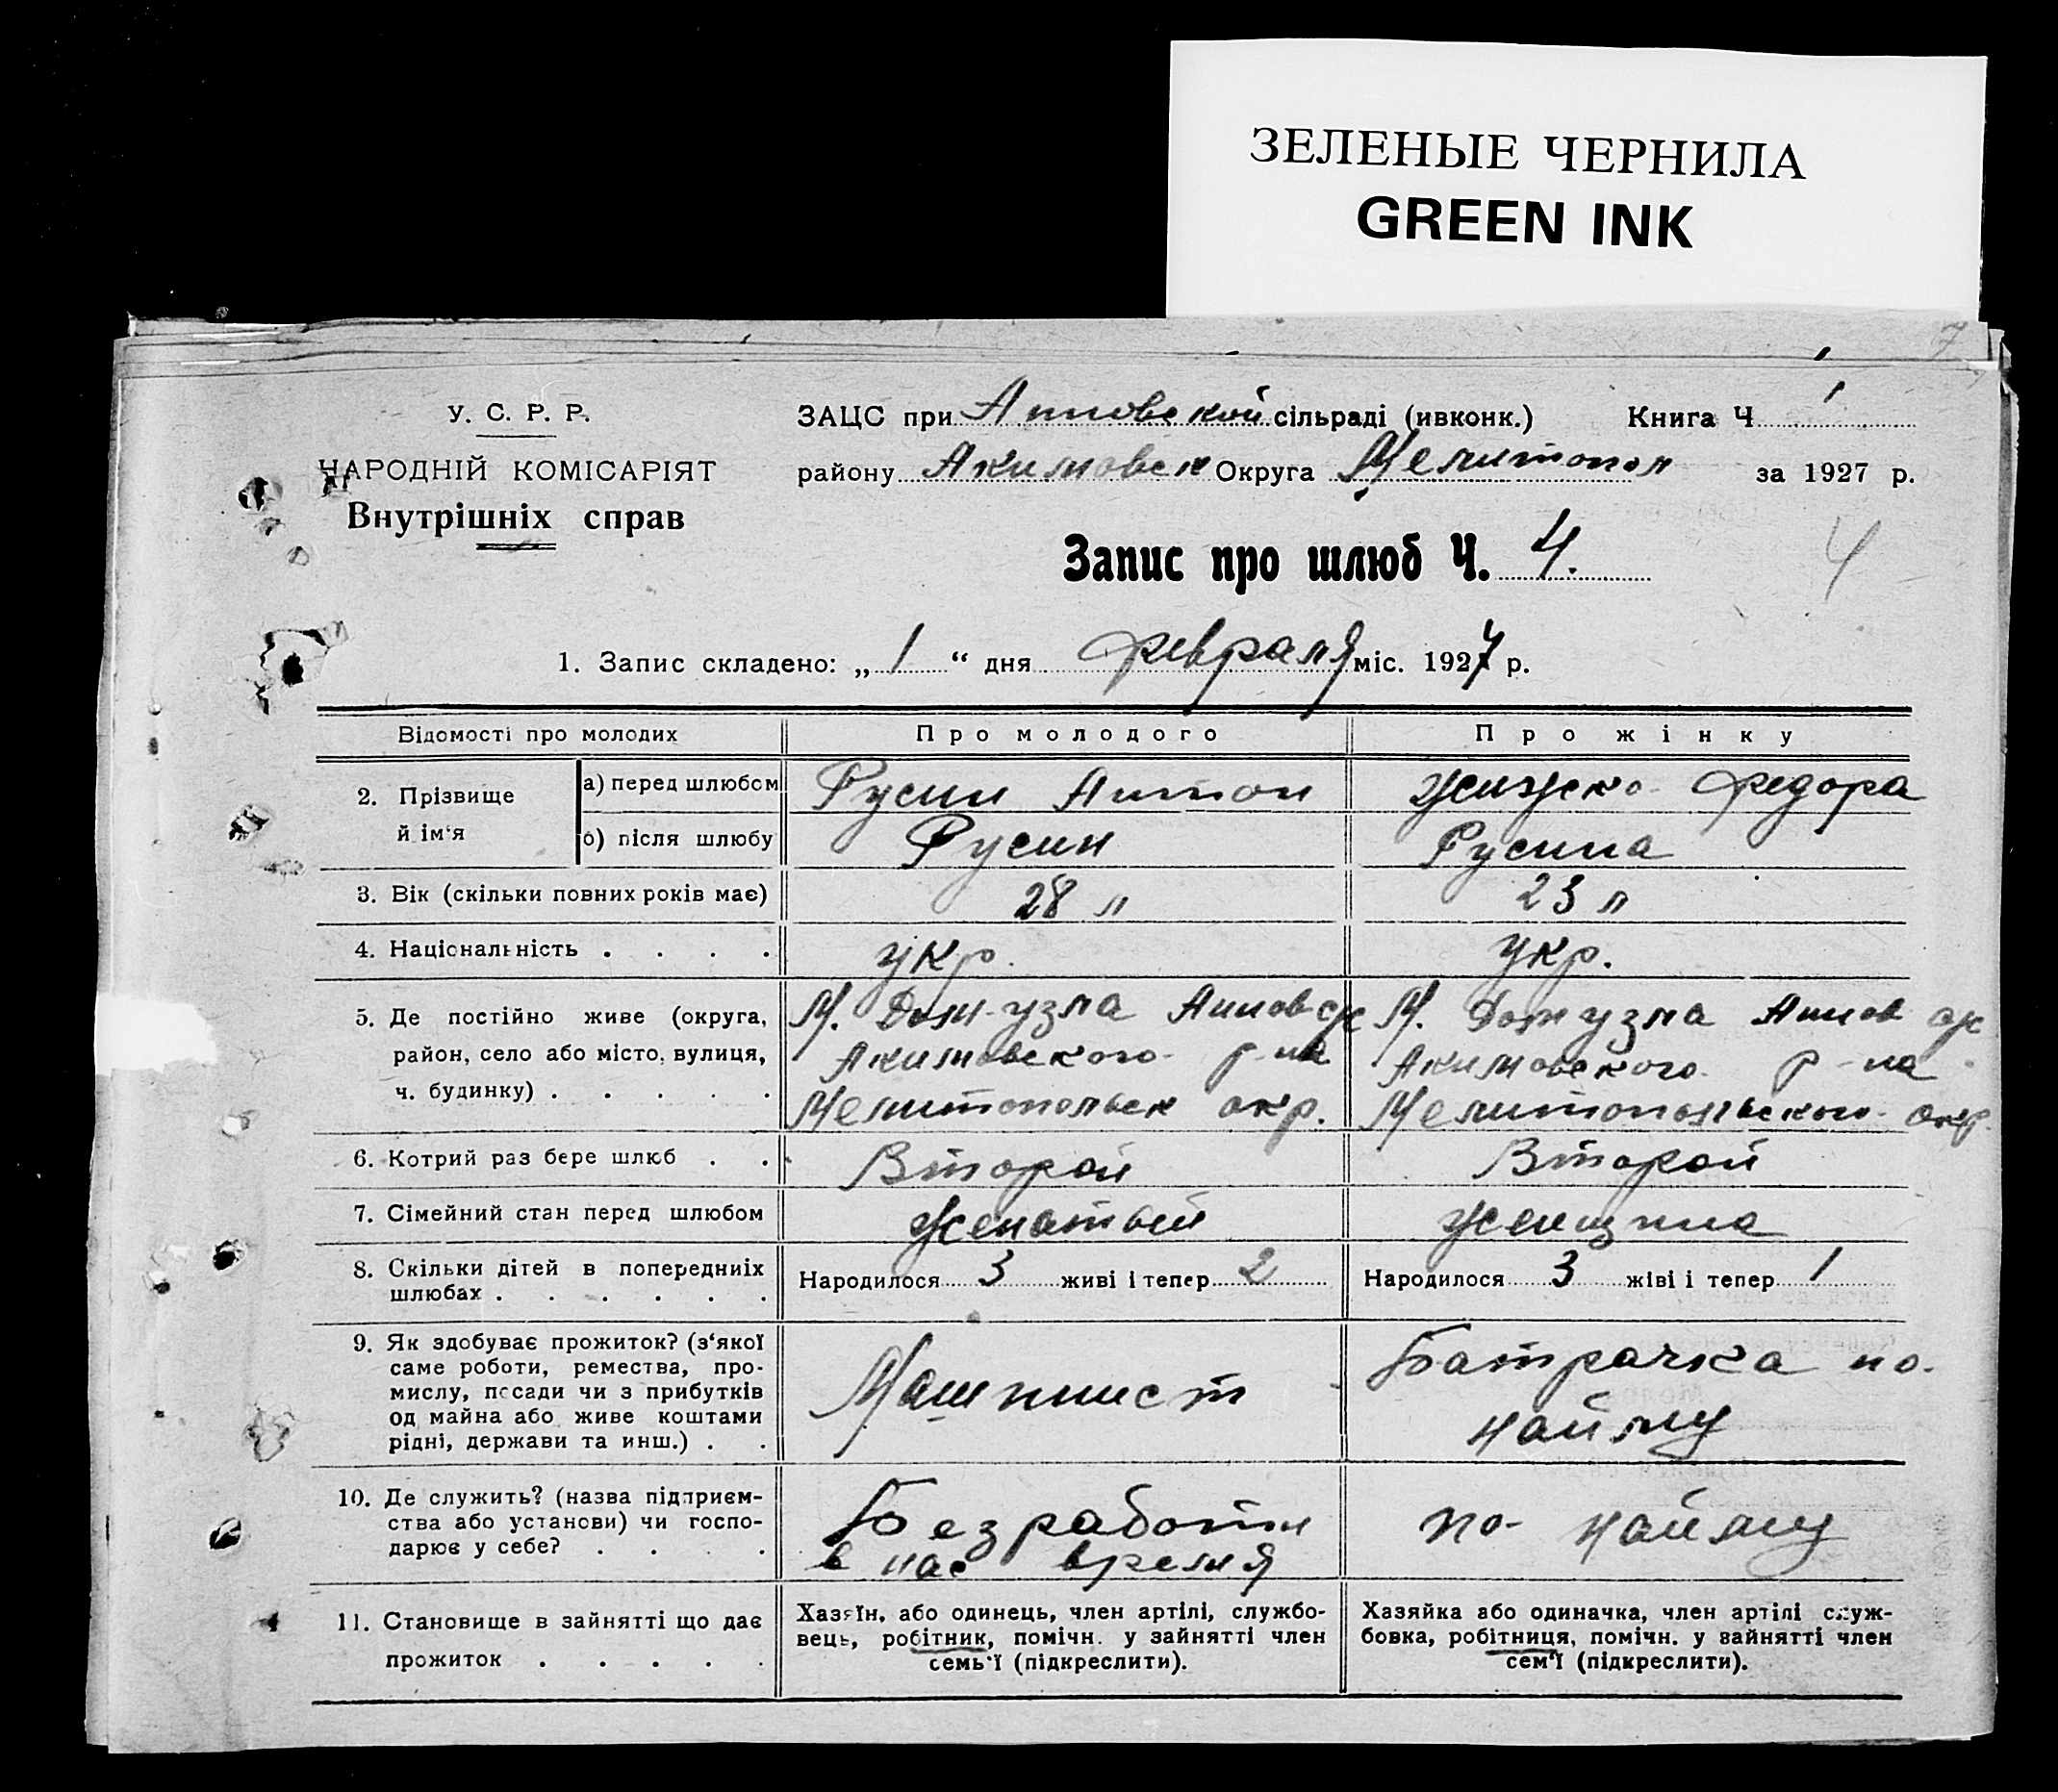 ЗЕЛЕНЫЕ ЧЕРНИЛА
GREEN INK
7
У. С. Р. Р.
НАРОДНІЙ КОМІСАРІЯТ
Внутрішніх справ
ЗАЦС при Анновской сільраді (ивконк.) Книга Ч 1
району Акимовск Округа Мелитопол за 1927 р.
Запис про шлюб Ч. 4.
4
1. Запис складено: „ 1 “ дня февраля міс. 1927 р.
Відомості про молодих
Про молодого
Про жінку
2. Прізвище й ім‘я
а) перед шлюбом Русин Антон Федора
б) після шлюбу Русин Русина
3. Вік (скільки повних років має) 28 л 23 л
4. Національність . . . . укр. укр.
5. Де постійно живе (округа,
район, село або місто, вулиця,
ч. будинку) . . . . .
М. Аннов
Акимовского р-на
Мелитопольск окр.
М. Аннов
Акимовского р-на
Мелитопольского окр.
6. Котрий раз бере шлюб . . Второй Второй
7. Сімейний стан перед шлюбом Женатый женщина
8. Скільки дітей в попередниіх
шлюбах . . . . . .
Народилося 3 живі і тепер 2
Народилося 3 жіві і тепер 1
9. Як здобуває прожиток? (з‘якої
саме роботи, ремества, про-
мислу, посади чи з прибутків
од майна або живе коштами
рідні, держави та инш.) . .
Машинист
Батрачка по
найму
10. Де служить? (назва підприєм-
ства або установи) чи госпо-
дарює у себе? . . . .
Без работы
в нас время
по найму
11. Становище в зайнятті що дає
прожиток . . . . .
Хазяїн, або одинець, член артілі, службо-
вець, робітник, помічн. у зайнятті член
семь‘ї (підкреслити).
Хазяйка або одиначка, член артілі служ-
бовка, робітниця, помічн. у зайнятті член
сем‘ї (підкреслити).